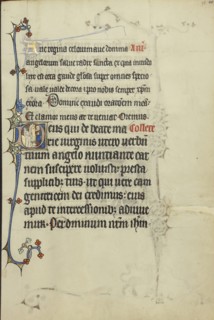 Ave regina celorum ave domina
angelorum salve radix sancta ex qua mundo
lux est orta gaude gloriosa super omnes specio
sa vale valde decora et pro nobis semper xpm
exora Domine exaudi orationem mea
Et clamor meus ad te veniat Oremus
Deus qui de beate ma Collecte
rie virginis utero verbu
tuum angelo nuntiante car
nem suscipere voluisti presta
supplicib; tuis ut qui vere eam
genitricem dei credimus eius
apud te intercessionib; adiuve
mur Per dominum nrm ihm